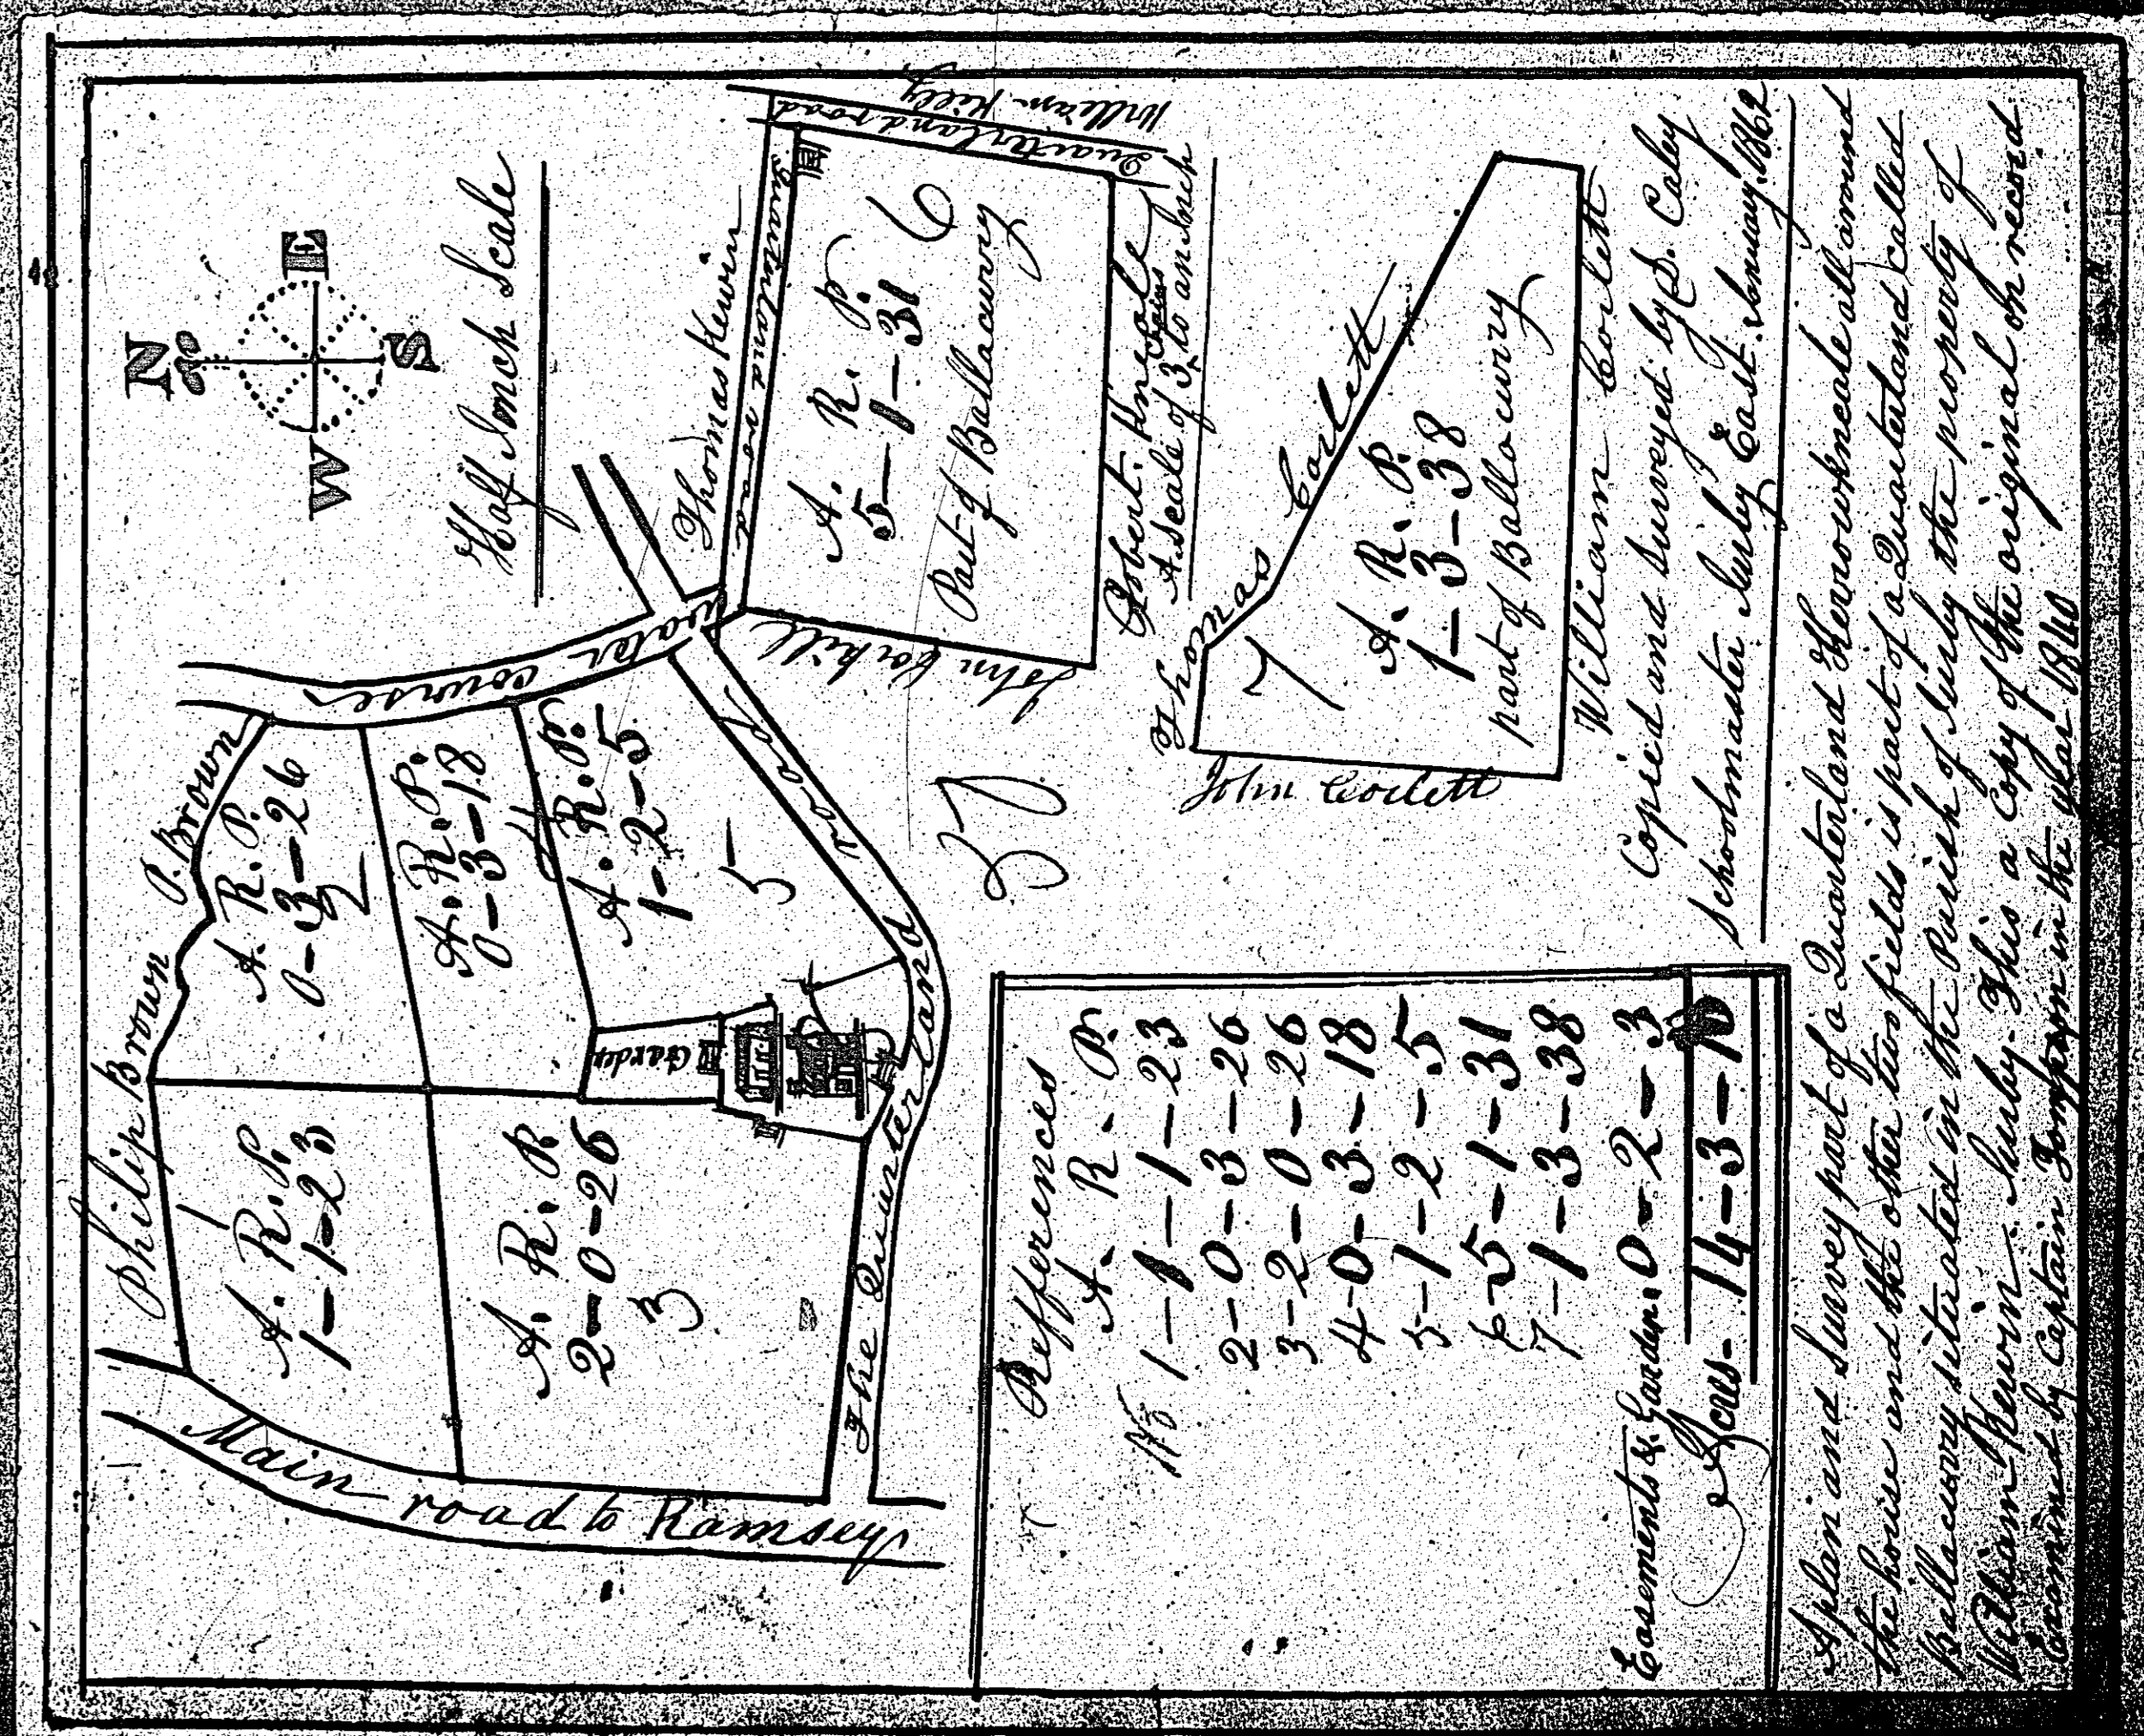 N
E
S
W
Half Inch Scale
Philip Brown
P. Brown
1
A. R. P.
1-1-23
A. R. P.
0-3-26
2
A. R. P.
0-3-18
4
A. R. P.
1-2-5
5
A. R. P.
2-0-26
3
Garden
water course
Main road to Ramsey
The Quarterland road
Thomas Kewin
Quarterland road
Quarterland road
William Kelly
A. R. P.
5-1-31
6
Part of Ballacurry
John Corkill
Robert
A Scale of 3 Chains to an Inch
Thomas Corlett
7
A. R. P.
1-3-38
part of Ballacurry
William Corlett
John Corlett
Copied and Surveyed by S. Caley
Schoolmaster Jurby East January 1862
Refferences
A. R. P.
No 1-1-1-23
2-0-3-26
3-2-0-26
4-0-3-18
5-1-2-5
6-5-1-31
7-1-3-38
Easements & Garden. 0-2-3
Acres- 14-3-10
A plan and Survey part of a Quarterland Kerrowkneale all around
the house and the other two fields is part of a Quarterland called
Ballacurry situated in the Parish of Jurby the property of
William Kewin. Jurby- This a Copy of the original on record
Examined by Captain in the year 1840